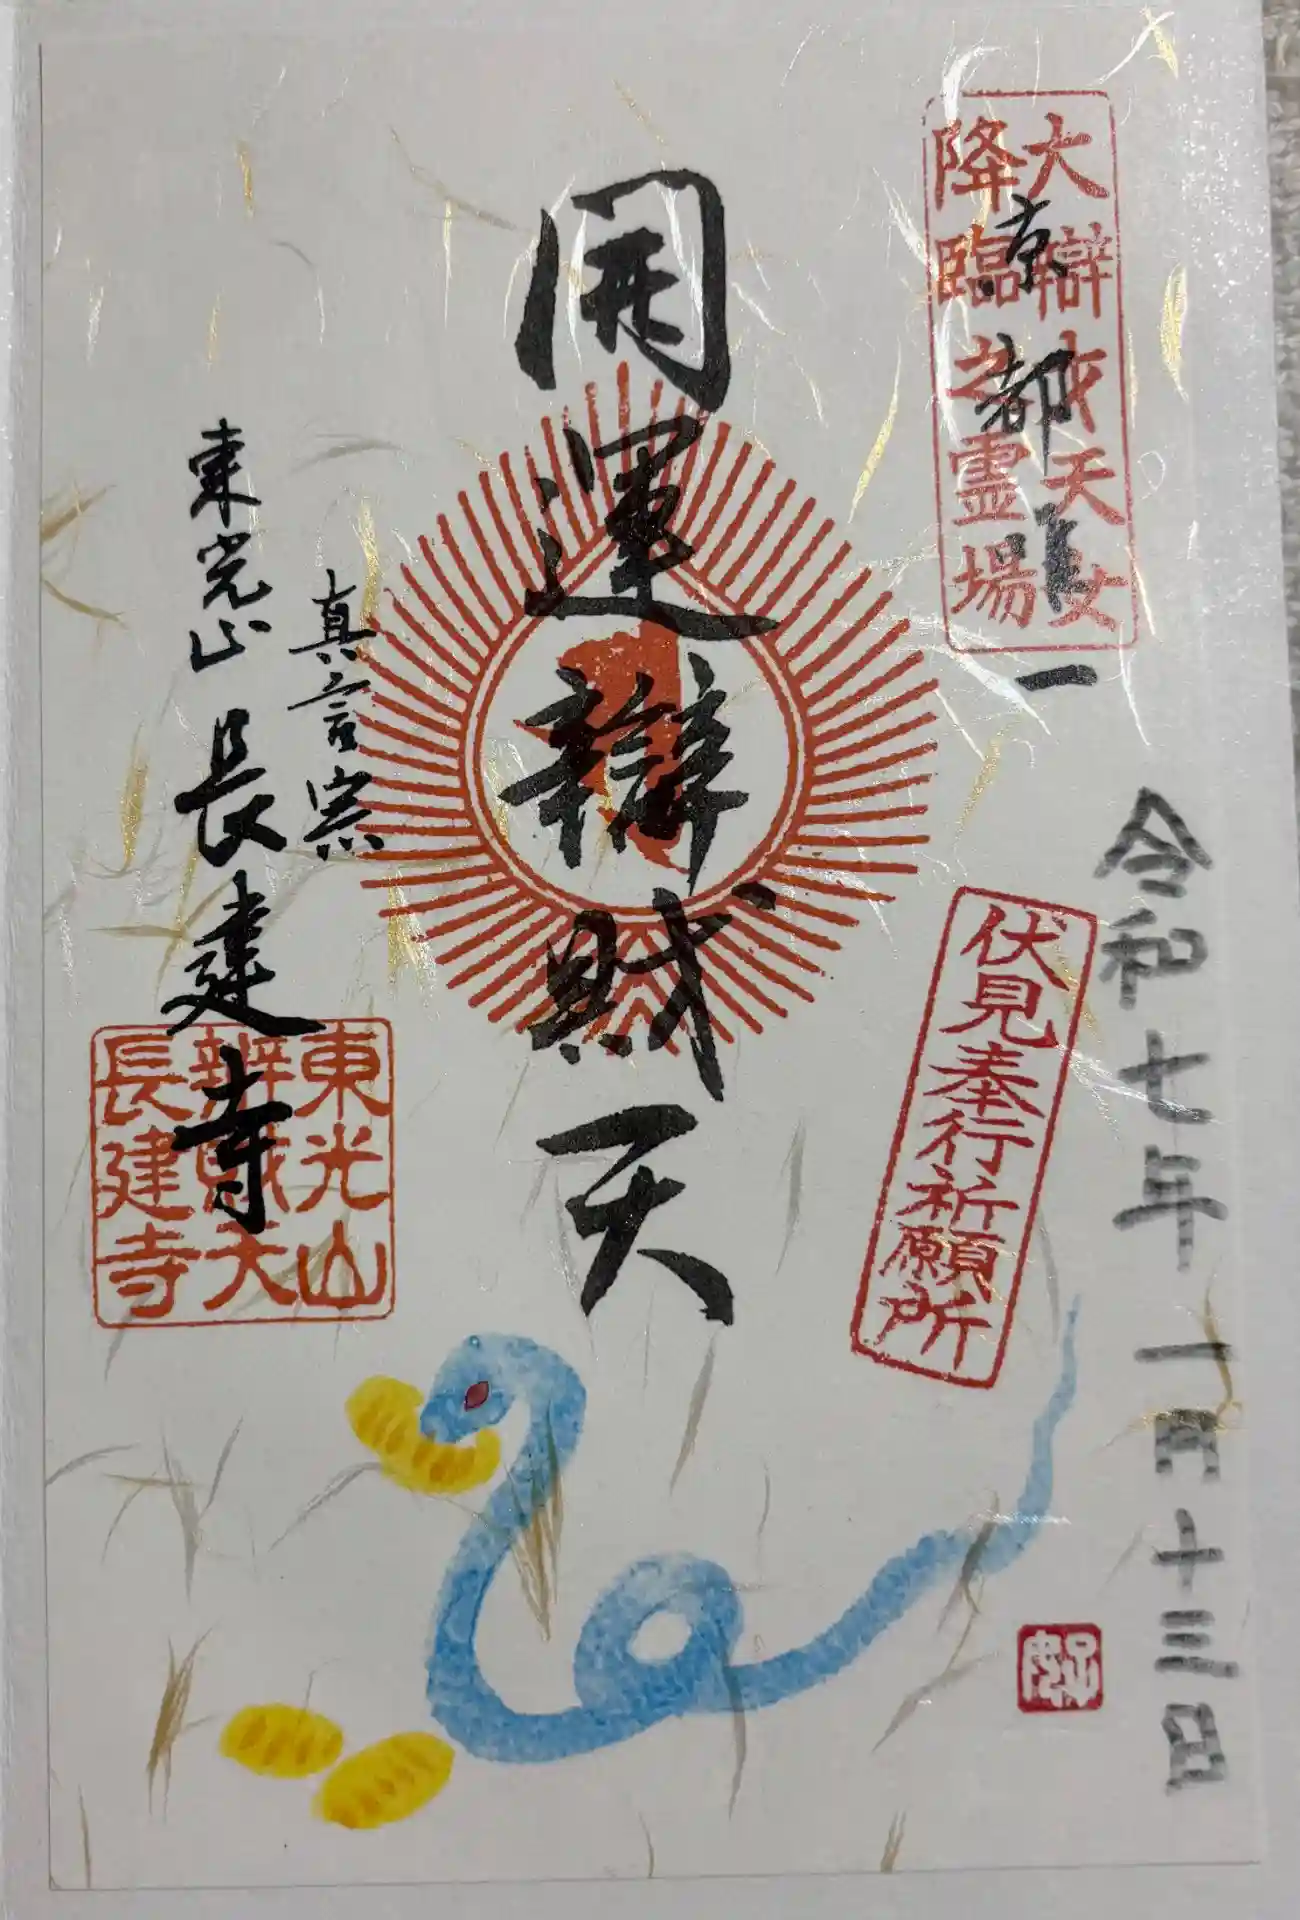 大辯才天女
降臨之霊場
京都
一
令和七年一月十三日
伏見奉行祈願所
開運辯財天
真言宗
東光山 長建寺
東光山
辨財天
長建寺